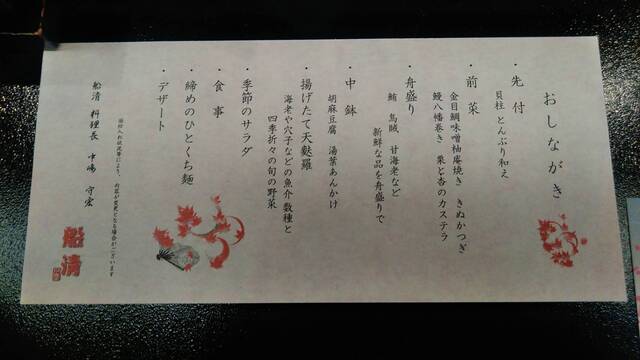 おしながき
・先付
貝柱 とんぶり和え
・前菜
金目鯛味噌柚庵焼き きぬかつぎ
鰻八幡巻き 栗と杏のカステラ
・舟盛り
鮪 烏賊 甘海老など
新鮮な品を舟盛りで
・中鉢
胡麻豆腐 湯葉あんかけ
・揚げたて天麩羅
海老や穴子などの魚介数種と
四季折々の旬の野菜
・季節のサラダ
・食事
・締めのひとくち麺
・デザート
※仕入れ状況等により、内容が変更となる場合がございます
船清 料理長 中嶋 守宏
船清